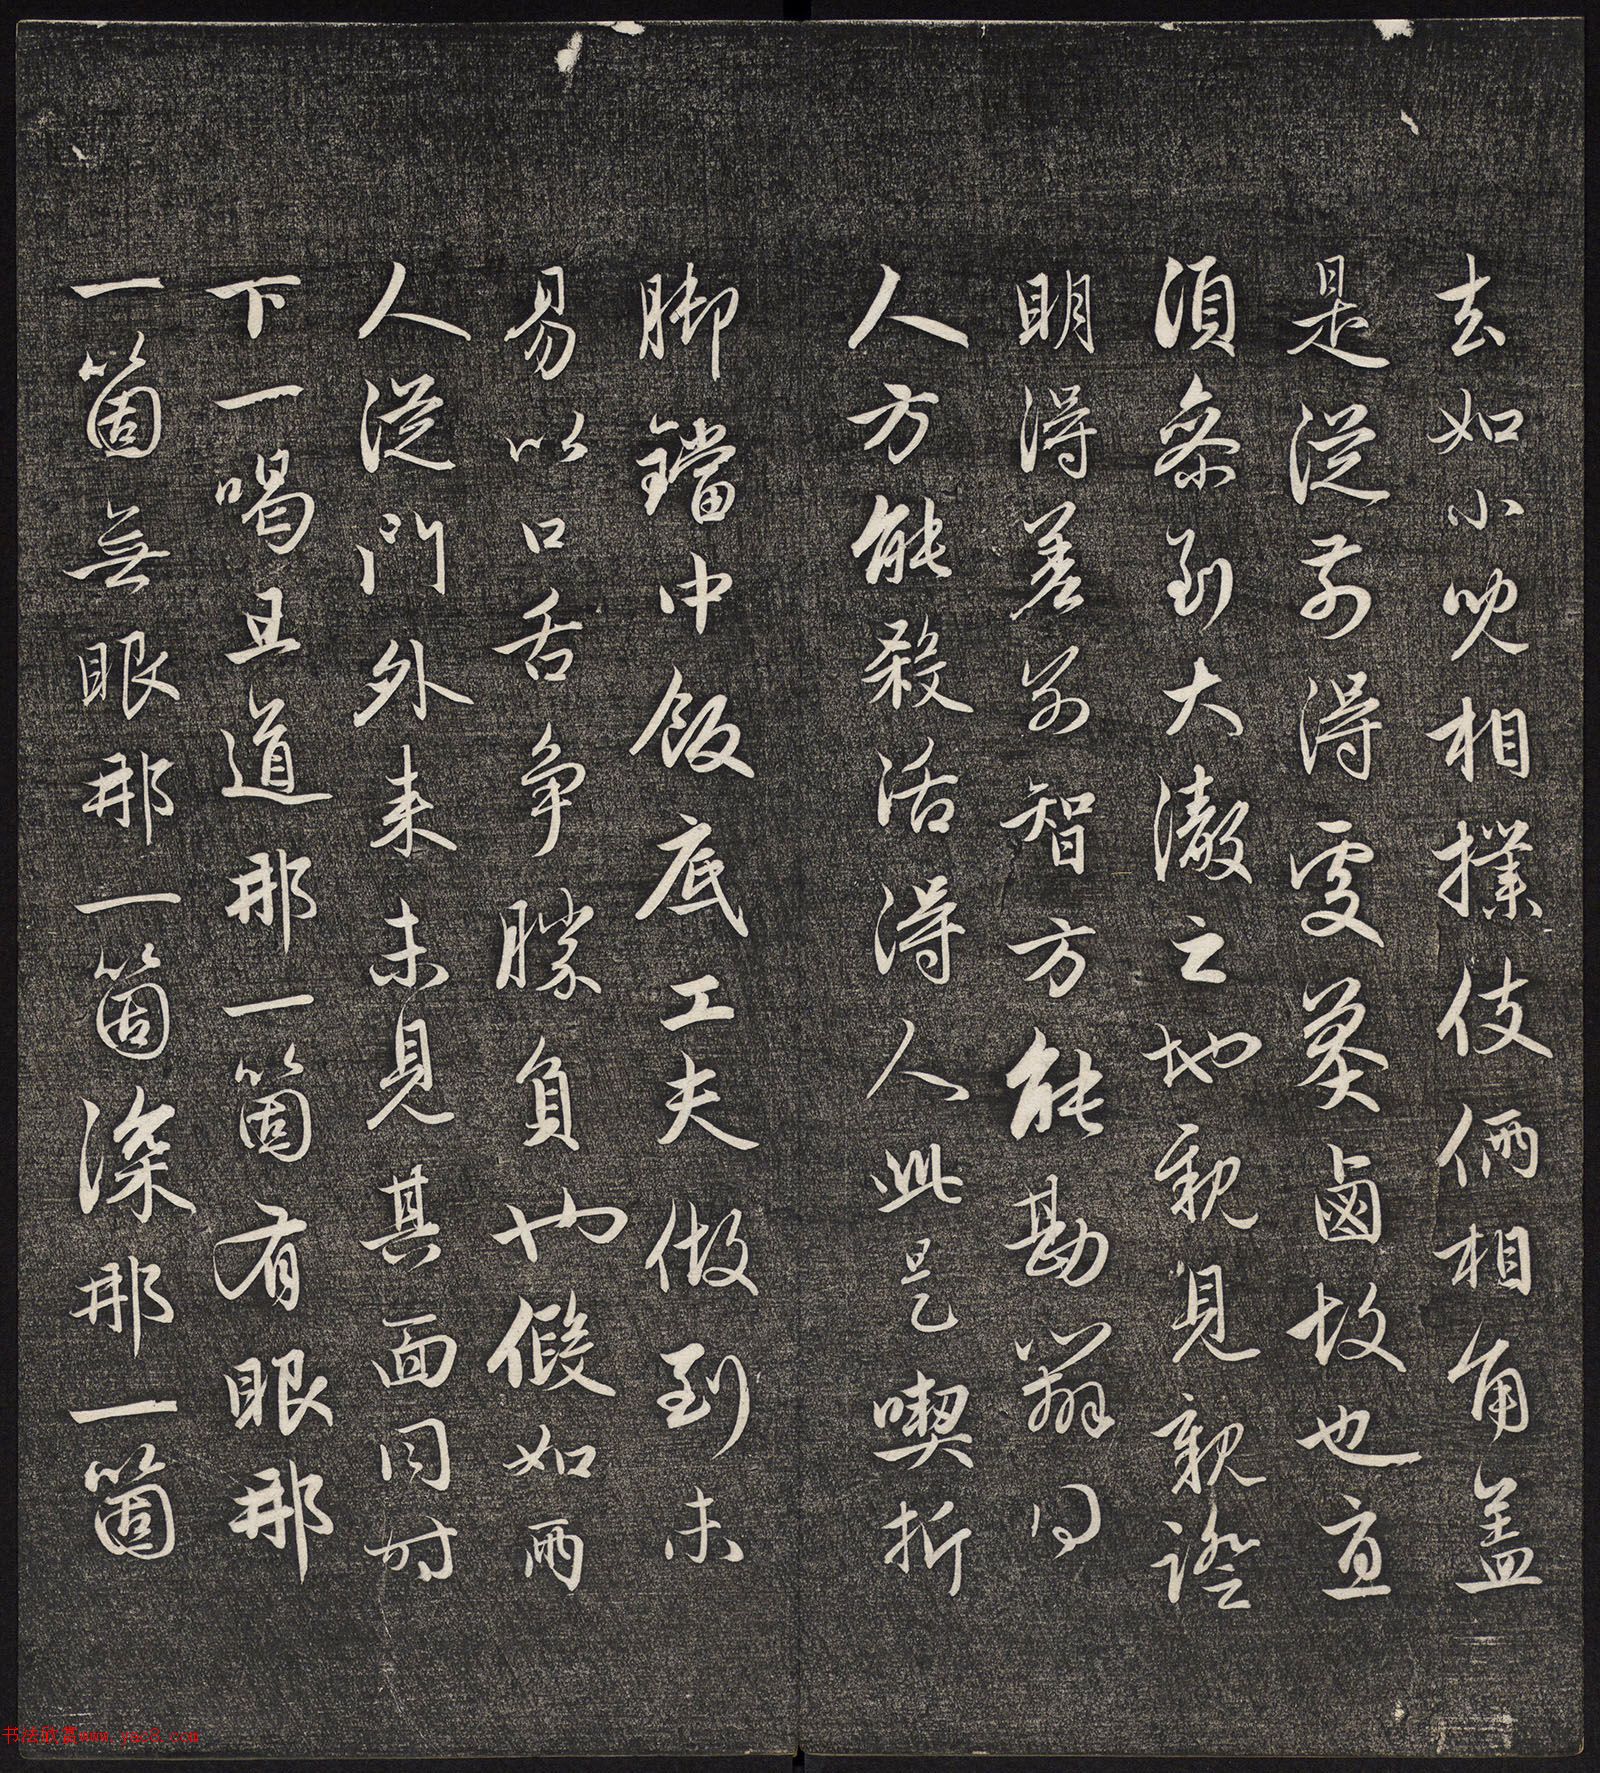 去如小児相撲伎倆相角蓋
是從前得處莽鹵故也直
須叅到大澈之地親見親證
明得差別智方能勘辯同
人方能殺活得人此是喫折
脚鐺中飯底工夫做到未
易以口舌争勝負也假如兩
人從門外来未見其面同時
下一喝且道那一箇有眼那
一箇無眼那一箇深那一箇
书法欣赏www.yac8.com